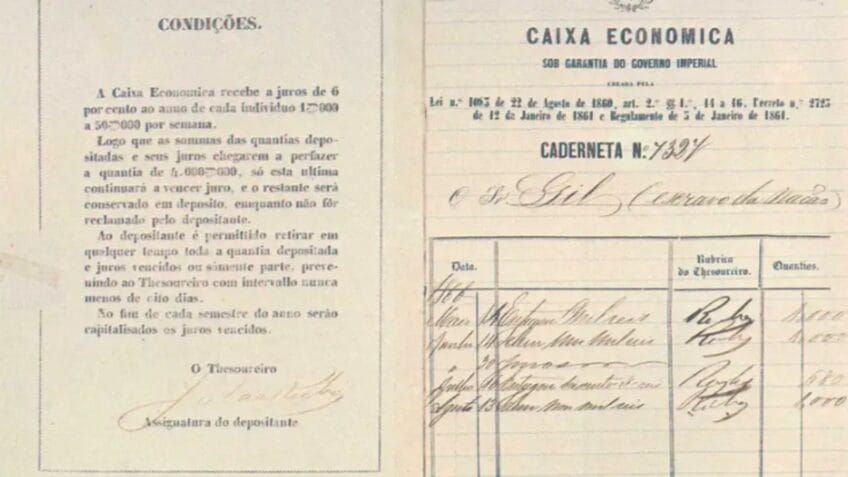 CONDIÇÕES.
A Caixa Economica recebe a juros de 6
por cento ao anno de cada individuo 1$000
a 50$000 por semana.
Logo que as sommas das quantias depo-
sitadas e seus juros chegarem a perfazer
a quantia de 4.000$000, só esta ultima
continuará a vencer juro, e o restante será
conservado em deposito, emquanto não fôr
reclamado pelo depositante.
Ao depositante é permittido retirar em
qualquer tempo toda a quantia depositada
e juros vencidos ou sómente parte, preve-
nindo ao Thesoureiro com intervallo nunca
menos de oito dias.
No fim de cada semestre do anno serão
capitalisados os juros vencidos.
O Thesoureiro
Assignatura do depositante
CAIXA ECONOMICA
SOB GARANTIA DO GOVERNO IMPERIAL
CREADA PELA
Lei n.º 1083 de 22 de Agosto de 1860, art. 2.º §§ 1.º, 14 a 16, Decreto n.º 2723
de 12 de Janeiro de 1861 e Regulamento de 5 de Janeiro de 1861.
CADERNETA N.º 7327
O Sr. Gil (escravo da Nação)
Data. Rubrica do Thesoureiro. Quantias.
1866
14 mil reis 1,000
mil reis 1,000
20 Juros
Julho 16 680
Agosto 13 mil reis 1,000